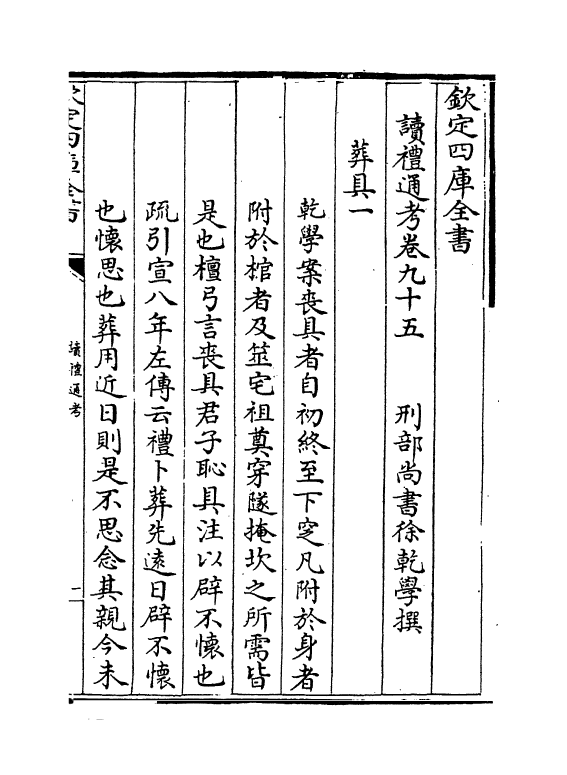 欽定四庫全書
讀禮通考卷九十五　刑部尚書徐乾學撰
葬具一
乾學案喪具者自初終至下窆凡附於身者
附於棺者及筮宅祖奠穿隧掩坎之所需皆
是也檀弓言喪具君子恥具注以辟不懷也
疏引宣八年左傳云禮卜葬先遠日辟不懷
也懷思也葬用近日則是不思念其親今未
欽定四庫全書
讀禮通考
一